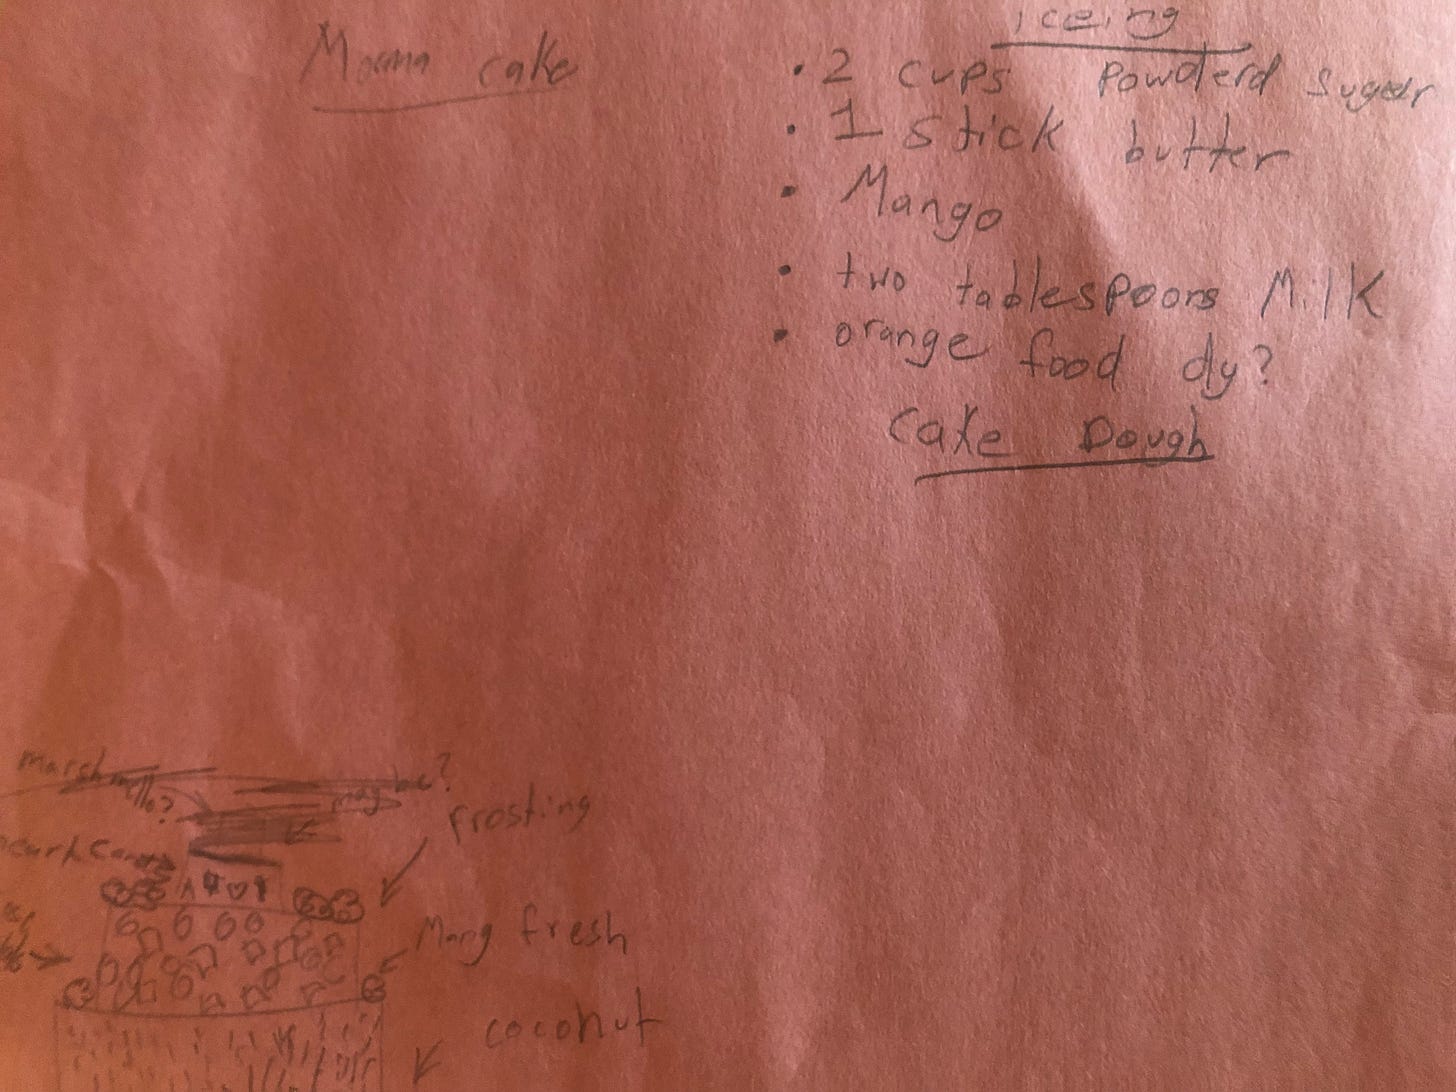 Moana cake
iceing
• 2 cups Powderd Sugar
• 1 stick butter
• Mango
• two tablespoons Milk
• orange food dy?
Cake Dough
marshmello?
maybe?
frosting
Mang fresh
coconut